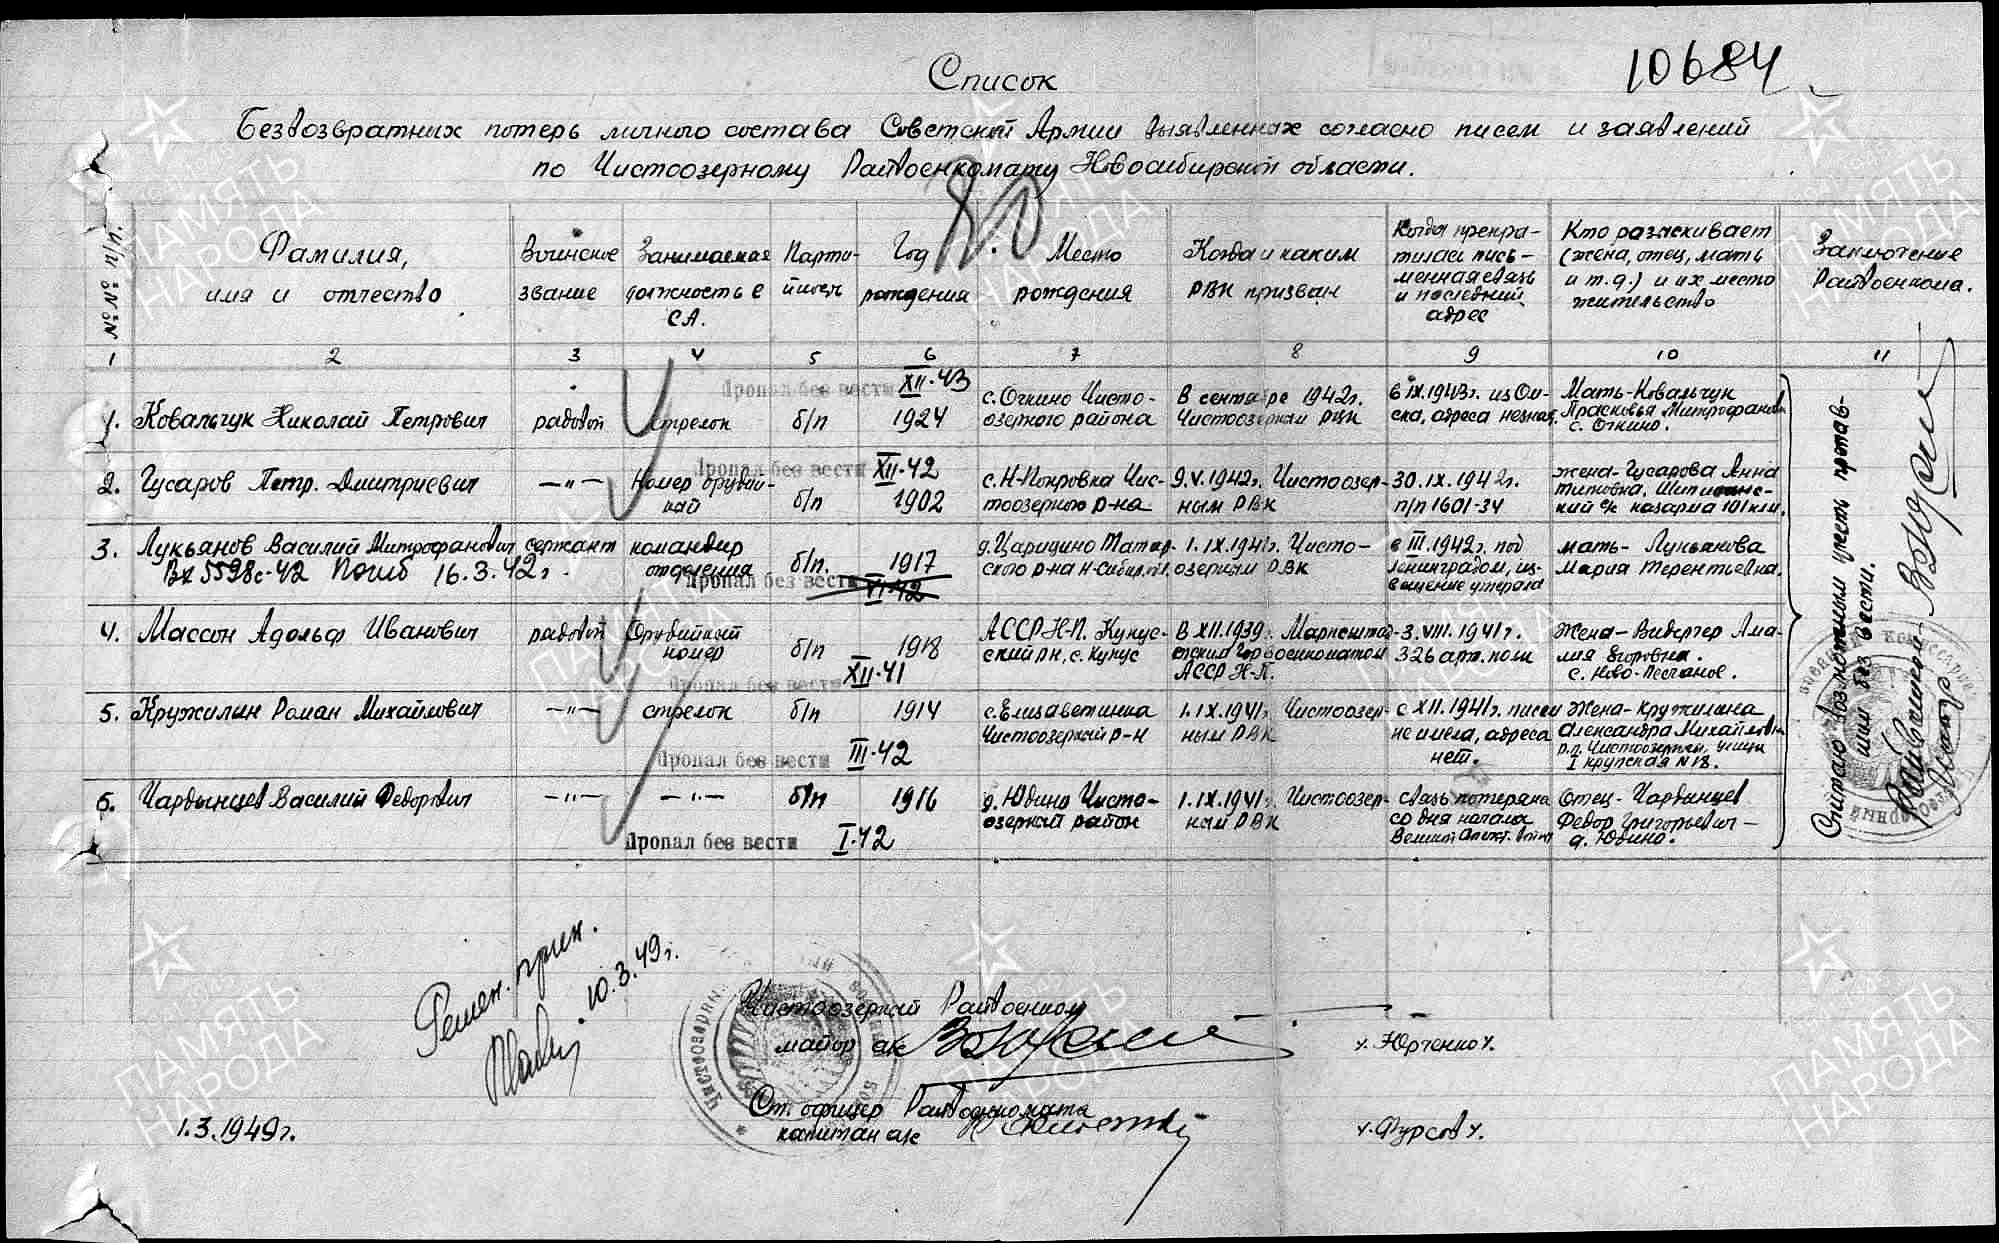 10684
Список
Безвозвратных потерь личного состава Советской Армии выявленных согласно писем и заявлений
по Чистоозерному Райвоенкомату Новосибирской области.
№№ п/п.
Фамилия,
имя и отчество
Воинское
звание
Занимаемая
должность в
СА.
Парти-
йность
Год
рождения
Место
рождения
Когда и каким
РВК призван
Когда прекра-
тилась пись-
менная связь
и последний
адрес
Кто разыскивает
(жена, отец, мать
и т.д.) и их место
жительство
Заключение
Райвоенкома.
1 2 3 4 5 6 7 8 9 10 11
Пропал без вести XII-43
1. Ковальчук Николай Петрович
рядовой
стрелок
б/п
1924
с. Очкино Чисто-
озерного района
В сентябре 1942г.
Чистоозерным РВК
в IX.1943г. из Ом-
ска, адреса незная.
Мать-Ковальчук
Прасковья Митрофановна
с. Очкино.
Пропал без вести XII-42
2. Гусаров Петр. Дмитриевич
—"—
Номер орудий-
ный
б/п
1902
с. Н-Покровка Чис-
тоозерного р-на
9.V.1942г. Чистоозер-
ным РВК
30.IX.1942г.
п/п 1601-34
жена-Гусарова Анна
Титовна,
казарма 101 км.
3. Лукьянов Василий Митрофанович
Вх 5598с-42 Погиб 16.3.42г.
сержант
командир
отделения
б/п.
1917
Пропал без вести VI-42
д. Царицино Татар-
ского р-на Н-Сибир.
1.IX.1941г. Чисто-
озерным РВК
в III.1942г. под
Ленинградом, из-
вещение утеряла
мать- Лукьянова
Мария Терентьевна.
4. Массон Адольф Иванович
рядовой
Орудийный
номер
б/п
1918
XII-41
Пропал без вести
АССР Н-П. Кукус-
ский рн, с. Кукус
В XII.1939г. Марксштад-
тским Горвоенкоматом
АССР Н-П.
3.VIII.1941г.
326 арт. полк
Жена-
Егоровна.
с. Ново-Песчаное.
5. Кружилин Роман Михайлович
—"—
стрелок
б/п
1914
Пропал без вести III-42
с. Елизаветинка
Чистоозерный р-н
1.IX.1941г. Чистоозер-
ным РВК
с XII.1941г. писем
не имела, адреса
нет.
Жена-Кружилина
Александра Михайловна
р.п. Чистоозерный, улица
I крупская N 18.
6. Чардынцев Василий Федорович
—"—
—"—
б/п
1916
Пропал без вести I-42
д. Юдино Чисто-
озерный район
1.IX.1941г. Чистоозер-
ным РВК
Связь потеряна
со дня начала
Великой Отечест. войны
Отец-Чардынцев
Федор Григорьевич-
д. Юдино.
Считаю возможным учесть пропав-
шим без вести.
Райвоенком
майор
10.3.49г.
Чистоозерный Райвоенком
майор а/с
"Юрченко".
Ст. офицер Райвоенкомата
капитан а/с
"Фурсов".
1.3.1949г.
ПАМЯТЬ
НАРОДА